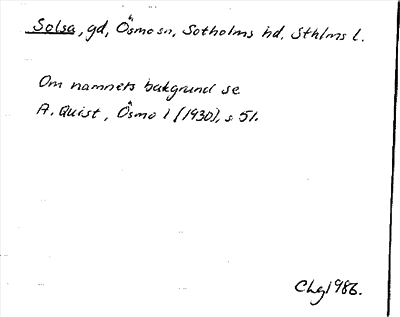 Solsa, gd, Ösmo sn, Sotholms hd, Sthlms l.
Om namnets bakgrund se
A. Quist, Ösmo I (1930), s 51.
Chg 1986.